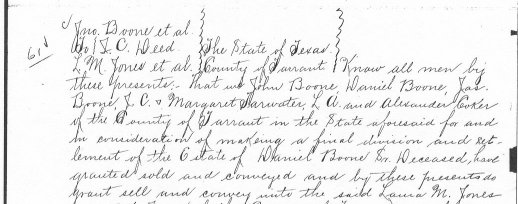 Jno. Boone et al.
To / I. C. Deed The State of Texas.
L. M. Jones et al. County of Tarrant Know all men by
these presents;- That we John Boone, Daniel Boone, Jas.
Boone, J. C. & Margaret Tarwater, L A. and Alexander Coker
of the County of Tarrant in the State aforesaid for and
in consideration of making a final division and set-
lement of the Estate of Daniel Boone Sr. Deceased, have
granted sold and conveyed and by these presents do
grant sell and convey unto the said Laura M. Jones